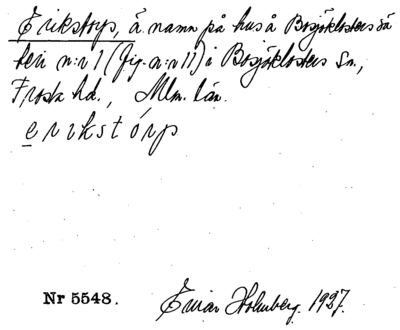 Erikstorp, ä. namn på hus å Bosjöklosters sä
teri n:r 1 (fig. a:n 11) i Bosjöklosters Sn.,
Frosta hd., Mlm. län.
erikstórp
Nr 5548. Einar Holmberg. 1927.